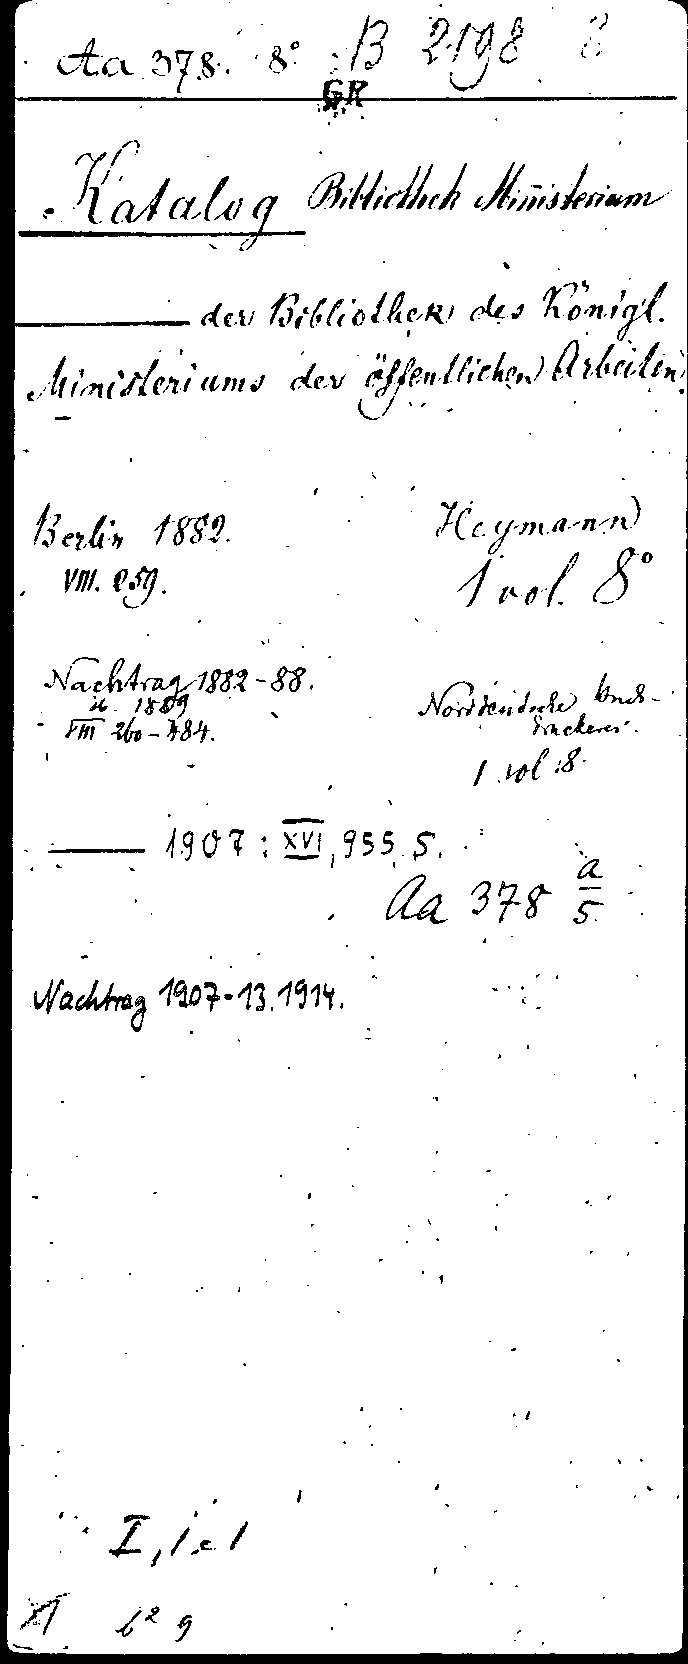 Aa 378. 8° B 2198 8
GR
Katalog Bibliothek Ministerium
der Bibliothek des Königl.
Ministeriums der öffentlichen Arbeiten.
Berlin 1882. Heymann
VIII. 259. 1 vol. 8°
Nachtrag 1882-88.
u. 1889
VIII 260-484.
Norddeutsche Buch-
druckerei.
1 vol. 8.
1907: XVI, 955 S.
Aa 378 a/5
Nachtrag 1907-13. 1914.
I, 1 c 1
b² 9